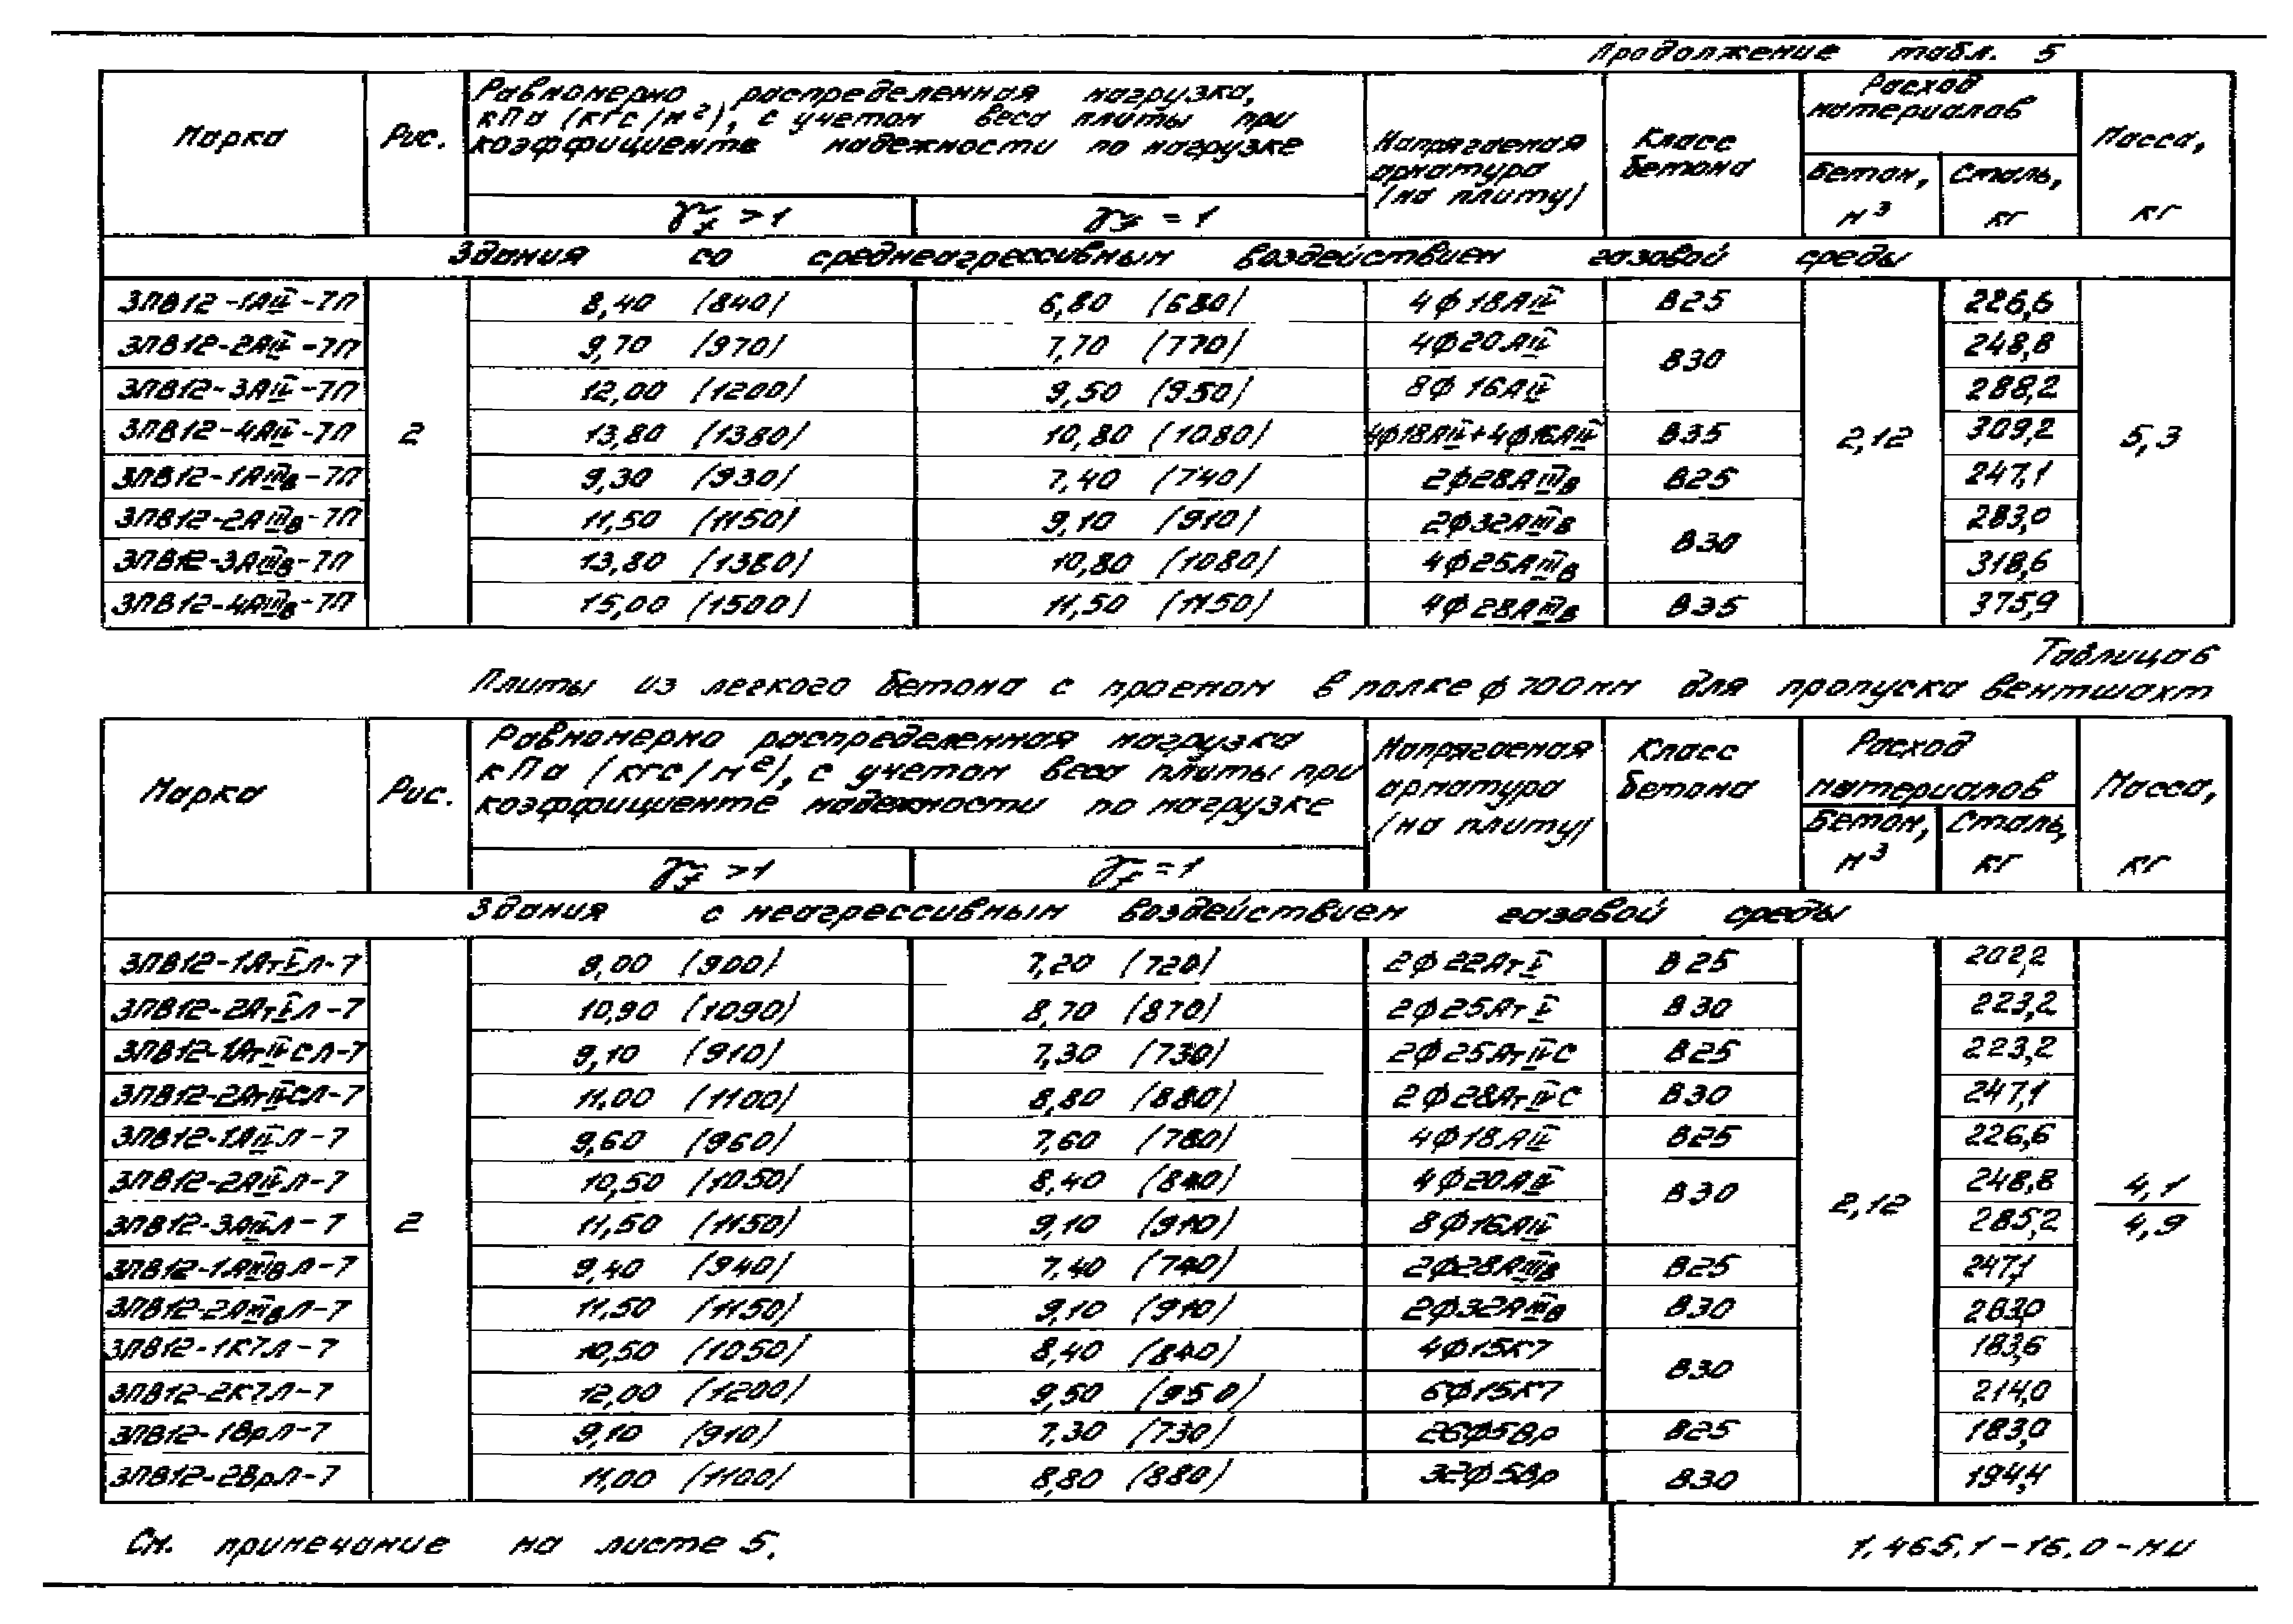 Продолжение табл. 5
Марка Рис. Равномерно распределенная нагрузка, кПа (кгс/м²), с учетом веса плиты при коэффициенте надежности по нагрузке Напрягаемая арматура (на плиту) Класс бетона Расход материалов Масса, кг
γf >1 γf = 1 Бетон, м³ Сталь, кг
Здания со среднеагрессивным воздействием газовой среды
3ПВ12-1АIV-7П 8,40 (840) 6,80 (680) 4ф18АIV В25 226,6
3ПВ12-2АIV-7П 9,70 (970) 7,70 (770) 4ф20АIV В30 248,8
3ПВ12-3АIV-7П 12,00 (1200) 9,50 (950) 8ф16АIV 288,2
3ПВ12-4АIV-7П 2 13,80 (1380) 10,80 (1080) 4ф18АIV+4ф16АIV В35 2,12 309,2 5,3
3ПВ12-1АIIIв-7П 9,30 (930) 7,40 (740) 2ф28АIIIв В25 247,1
3ПВ12-2АIIIв-7П 11,50 (1150) 9,10 (910) 2ф32АIIIв В30 283,0
3ПВ12-3АIIIв-7П 13,80 (1380) 10,80 (1080) 4ф25АIIIв 318,6
3ПВ12-4АIIIв-7П 15,00 (1500) 11,50 (1150) 4ф28АIIIв В35 375,9
Таблица 6
Плиты из легкого бетона с проемом в полке ф 700мм для пропуска вентшахт
Марка Рис. Равномерно распределенная нагрузка кПа (кгс/м²), с учетом веса плиты при коэффициенте надежности по нагрузке Напрягаемая арматура (на плиту) Класс бетона Расход материалов Масса, кг
γf >1 γf =1 Бетон, м³ Сталь, кг
Здания с неагрессивным воздействием газовой среды
3ПВ12-1АтVЛ-7 9,00 (900) 7,20 (720) 2ф22АтV В25 202,2
3ПВ12-2АтVЛ-7 10,90 (1090) 8,70 (870) 2ф25АтV В30 223,2
3ПВ12-1АтIVСЛ-7 9,10 (910) 7,30 (730) 2ф25АтIVС В25 223,2
3ПВ12-2АтIVСЛ-7 11,00 (1100) 8,80 (880) 2ф28АтIVС В30 247,1
3ПВ12-1АIVЛ-7 9,60 (960) 7,60 (760) 4ф18АIV В25 226,6
3ПВ12-2АIVЛ-7 10,50 (1050) 8,40 (840) 4ф20АIV В30 248,8
3ПВ12-3АIVЛ-7 2 11,50 (1150) 9,10 (910) 8ф16АIV 2,12 285,2 4,1/4,9
3ПВ12-1АIIIвЛ-7 9,40 (940) 7,40 (740) 2ф28АIIIв В25 247,1
3ПВ12-2АIIIвЛ-7 11,50 (1150) 9,10 (910) 2ф32АIIIв В30 283,0
3ПВ12-1К7Л-7 10,50 (1050) 8,40 (840) 4ф15К7 В30 183,6
3ПВ12-2К7Л-7 12,00 (1200) 9,50 (950) 6ф15К7 214,0
3ПВ12-1ВрЛ-7 9,10 (910) 7,30 (730) 26ф5Вр В25 183,0
3ПВ12-2ВрЛ-7 11,00 (1100) 8,80 (880) 32ф5Вр В30 194,4
См. примечание на листе 5.
1.465.1-16.0-НИ